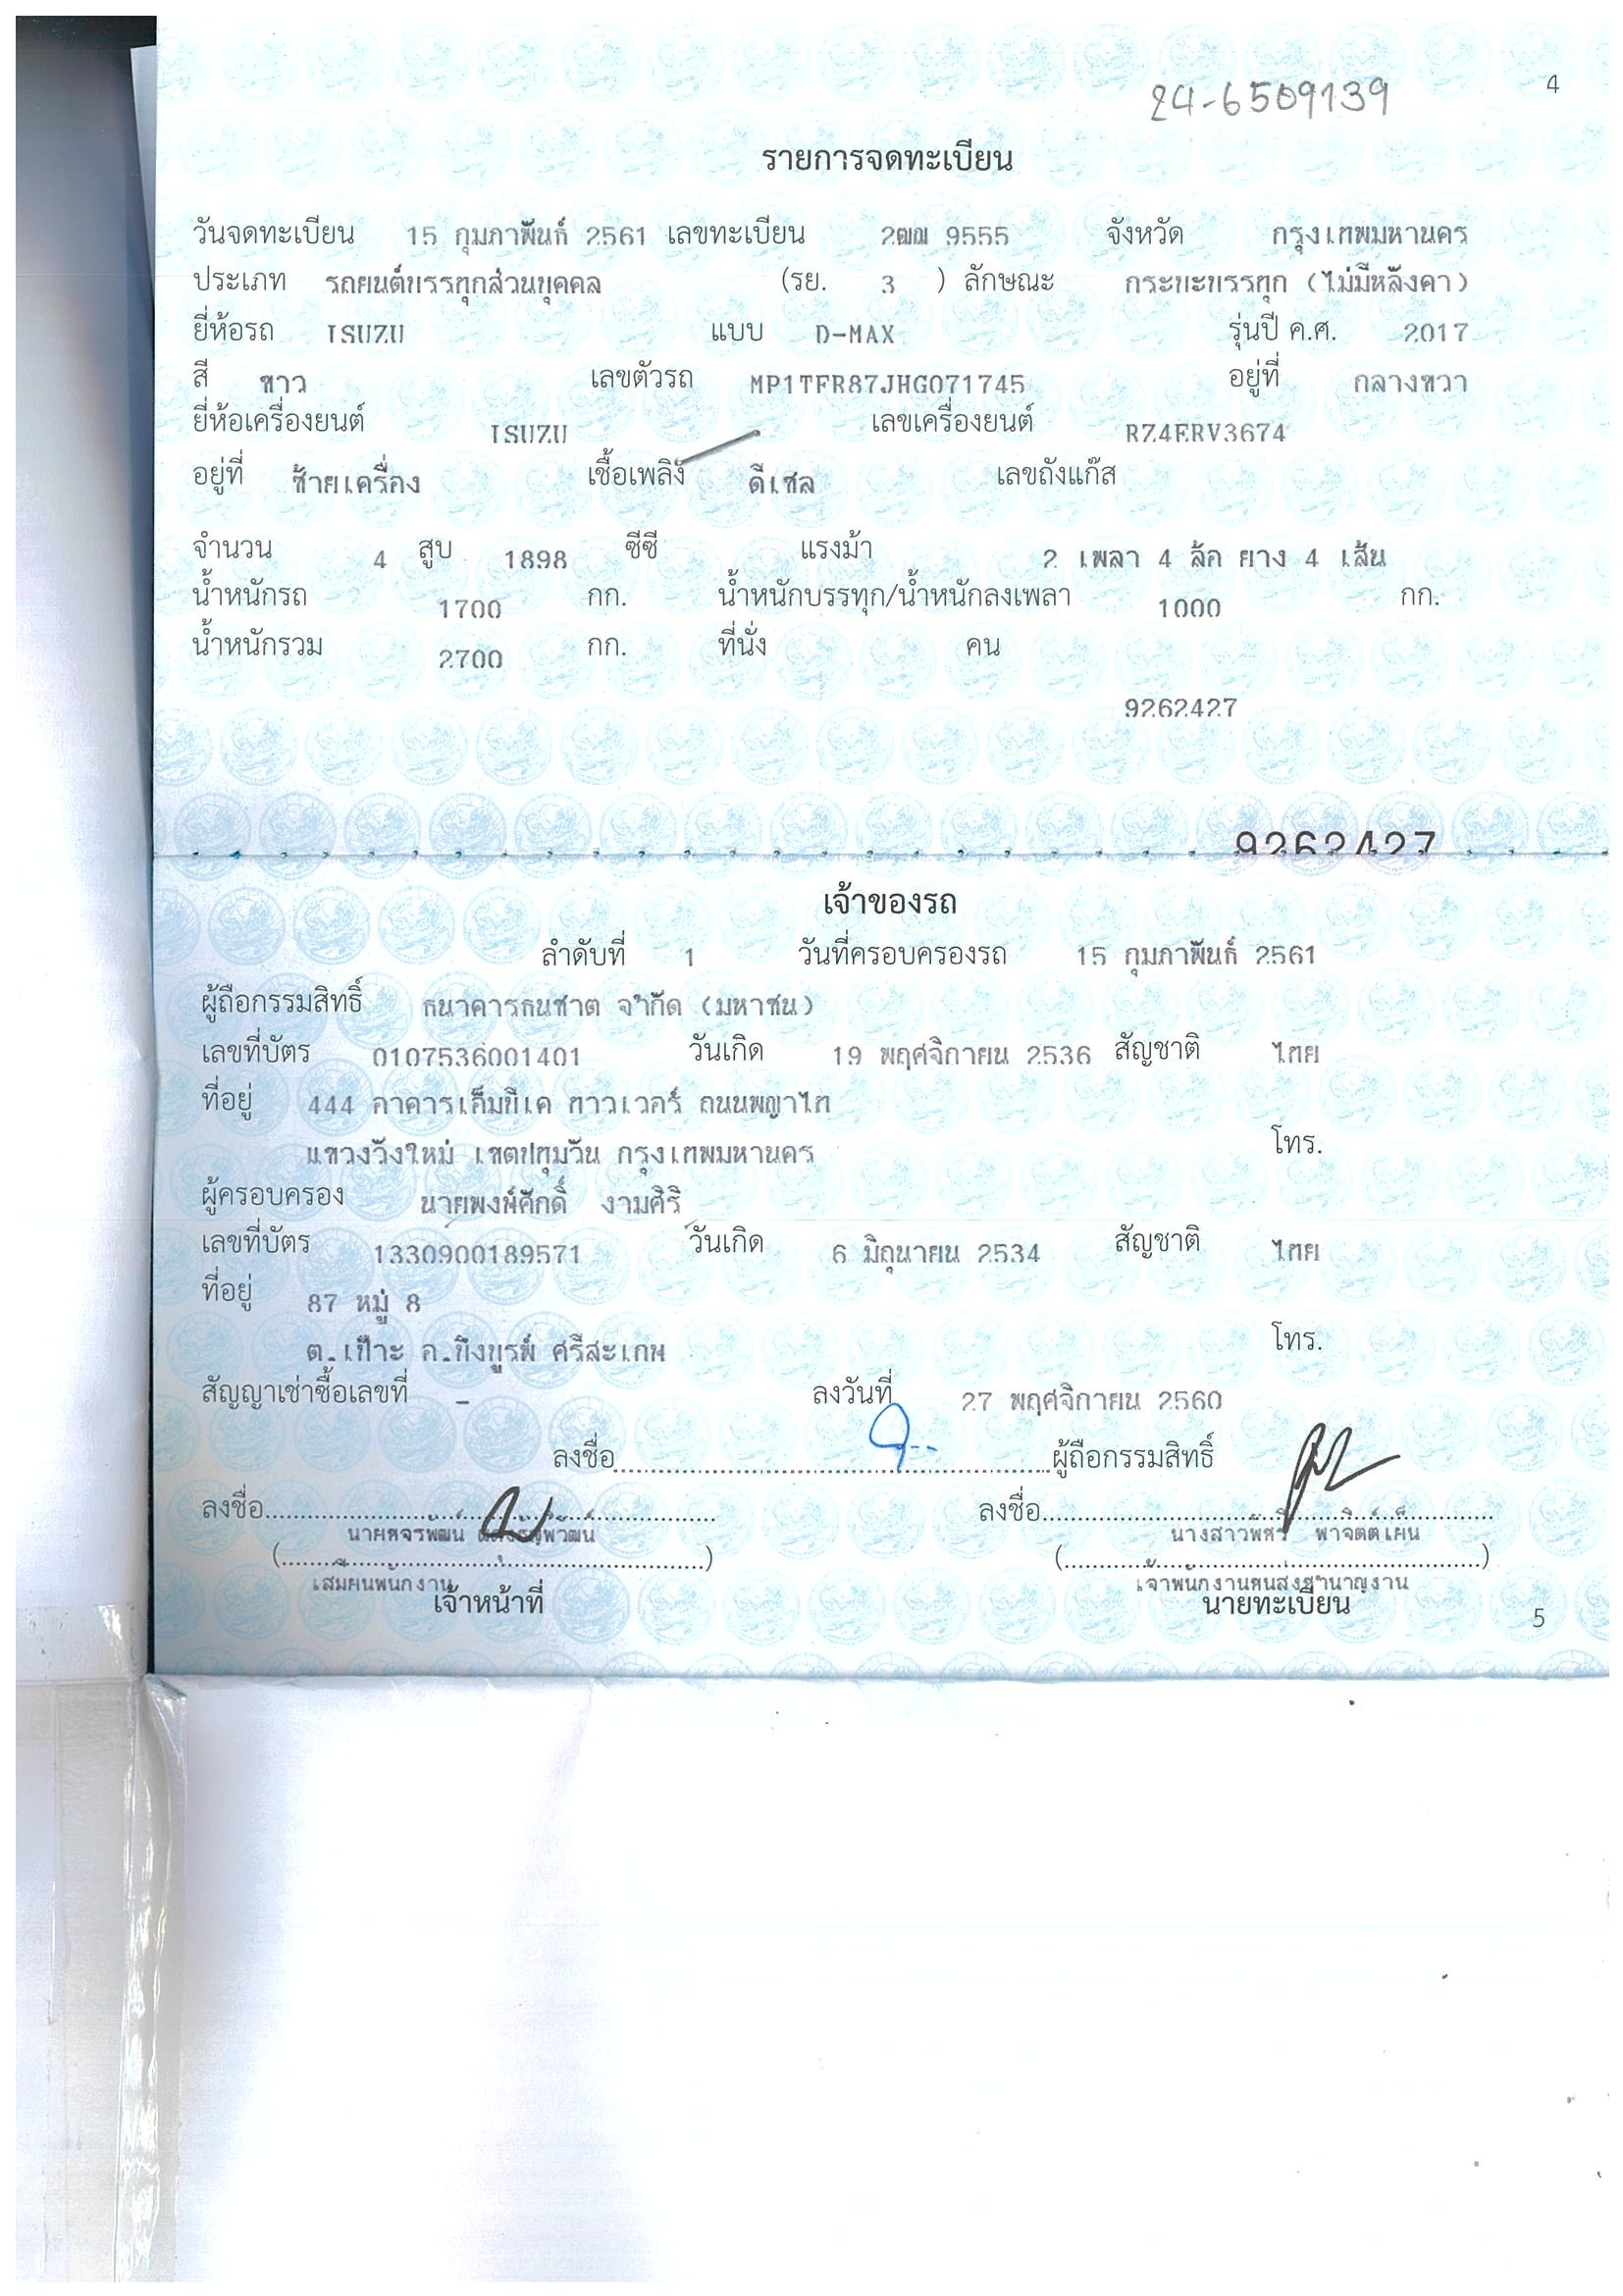 24-6509139
4
รายการจดทะเบียน
วันจดทะเบียน 15 กุมภาพันธ์ 2561 เลขทะเบียน 2ฒฌ 9555 จังหวัด กรุงเทพมหานคร
ประเภท รถยนต์บรรทุกส่วนบุคคล (รย. 3 ) ลักษณะ กระบะบรรทุก (ไม่มีหลังคา)
ยี่ห้อรถ ISUZU แบบ D-MAX รุ่นปี ค.ศ. 2017
สี ขาว เลขตัวรถ MP1TFR87JHG071745 อยู่ที่ กลางขวา
ยี่ห้อเครื่องยนต์ ISUZU เลขเครื่องยนต์ RZ4ERV3674
อยู่ที่ ซ้ายเครื่อง เชื้อเพลิง ดีเซล เลขถังแก๊ส
จำนวน 4 สูบ 1898 ซีซี แรงม้า 2 เพลา 4 ล้อ ยาง 4 เส้น
น้ำหนักรถ 1700 กก. น้ำหนักบรรทุก/น้ำหนักลงเพลา 1000 กก.
น้ำหนักรวม 2700 กก. ที่นั่ง คน
9262427
9262427
เจ้าของรถ
ลำดับที่ 1 วันที่ครอบครองรถ 15 กุมภาพันธ์ 2561
ผู้ถือกรรมสิทธิ์ ธนาคารธนชาต จำกัด (มหาชน)
เลขที่บัตร 0107536001401 วันเกิด 19 พฤศจิกายน 2536 สัญชาติ ไทย
ที่อยู่ 444 อาคารเอ็มบีเค ทาวเวอร์ ถนนพญาไท
แขวงวังใหม่ เขตปทุมวัน กรุงเทพมหานคร โทร.
ผู้ครอบครอง นายพงษ์ศักดิ์ งามศิริ
เลขที่บัตร 1330900189571 วันเกิด 6 มิถุนายน 2534 สัญชาติ ไทย
ที่อยู่ 87 หมู่ 8
ต.เป๊าะ อ.บึงบูรพ์ ศรีสะเกษ โทร.
สัญญาเช่าซื้อเลขที่ - ลงวันที่ 27 พฤศจิกายน 2560
ลงชื่อ ผู้ถือกรรมสิทธิ์
ลงชื่อ ลงชื่อ
นางสาวพัศรี พาจิตต์เย็น
เสมียนพนักงาน เจ้าพนักงานขนส่งชำนาญงาน
เจ้าหน้าที่ นายทะเบียน
5